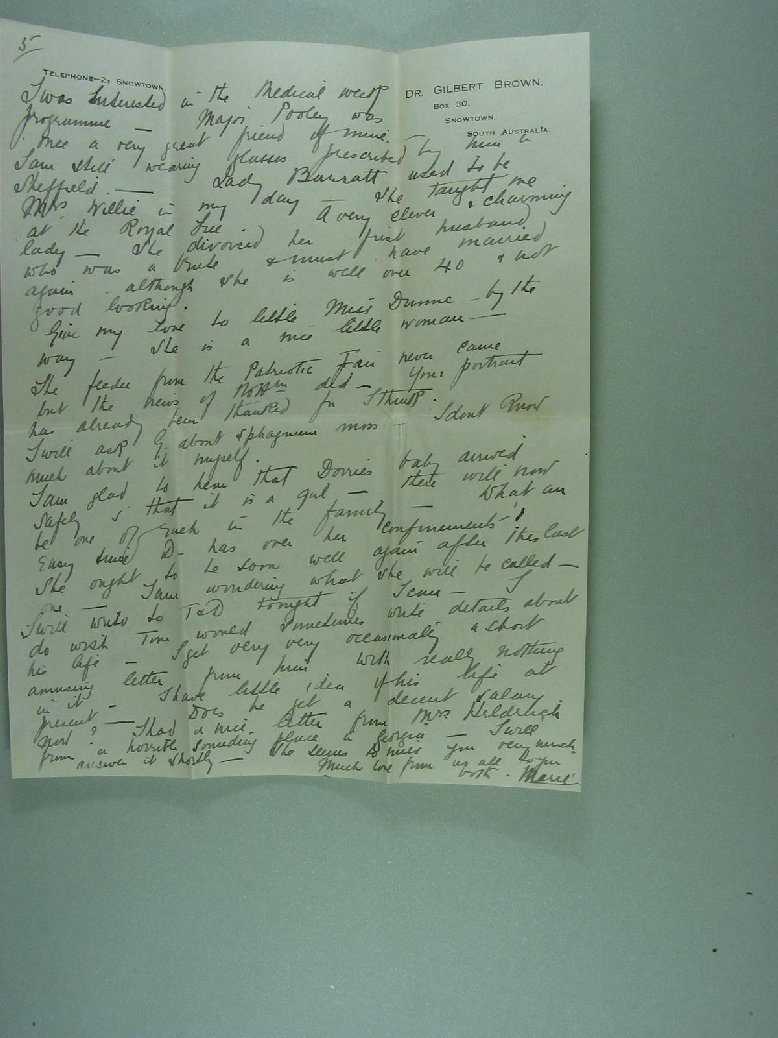 5
TELEPHONE—2, SNOWTOWN.
DR. GILBERT BROWN.
BOX 30,
SNOWTOWN
SOUTH AUSTRALIA.
I was interested in the Medical week
programme — Major Pooley was
once a very great friend of mine —
I am still wearing glasses prescribed by him in
Sheffield. — Lady Barratt used to be
Mrs Willie in my day — She taught me
at the Royal Free. A very clever & charming
lady — She divorced her first husband
who was a brute & must have married
again — although she is well over 40 & not
good looking.
Give my love to little Miss Dunne — by the
way — She is a nice little woman —
The feeder from the Patriotic Fair never came
but the news of did — Your portrait
has already been thanked for I think.
I will ask G about sphagnum moss — I dont know
much about it myself.
I am glad to hear that Dorries baby arrived
safely & that it is a girl — there will now
be one of each in the family — What an
easy time D— has over her confinements!
She ought to be soon well again after this last
one — I am wondering what she will be called —
I will write to T&D tonight if I can — I
do wish Tom would sometimes write details about
his life — I get very very occasionally a short
amusing letter from him with really nothing
in it. I have little idea of his life at
present — Does he get a decent salary
now? — I had a nice letter from Mrs
from a horrible sounding place in Georgia — I will
answer it shortly — She seems to miss you very much.
Much love from us all to you
both. Marie